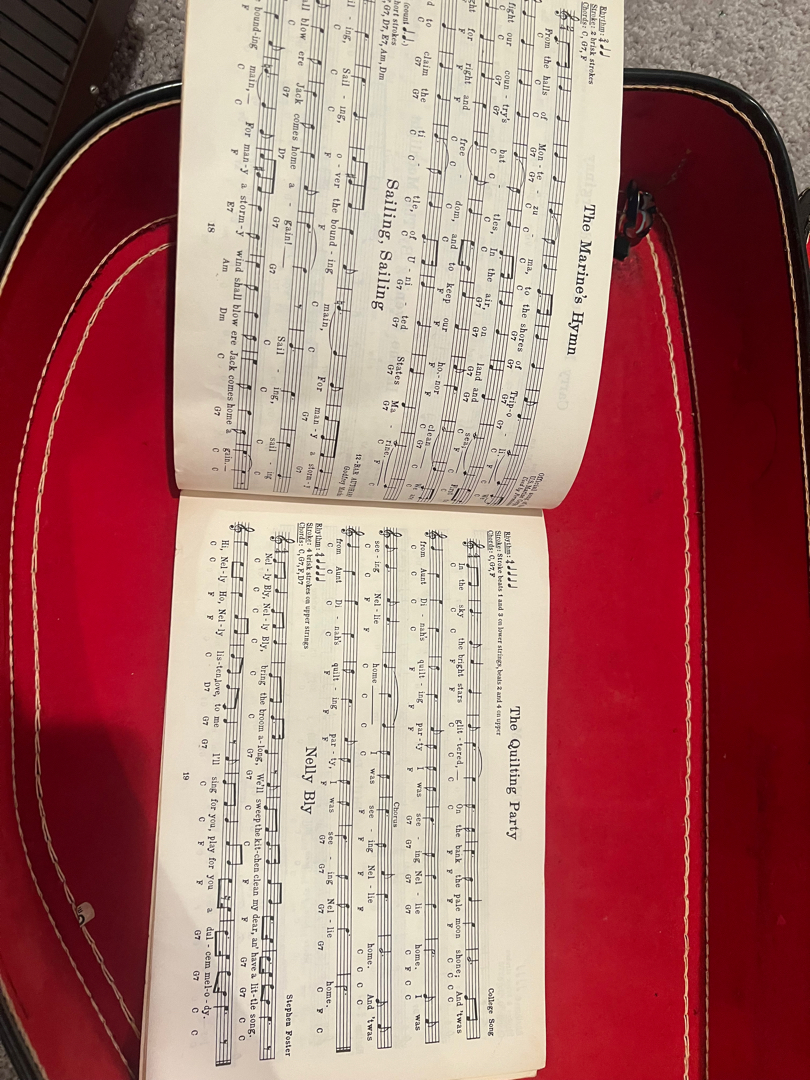 The Marine's Hymn
Rhythm:
Stroke: 2 brisk strokes
Chords: C, G7, F
From the halls of Mon - te - zu - ma, to the shores of Trip-o - li,
C C G7 G7 C C G7 G7 G7 C
fight our coun - try's bat - tles, In the air, on land and sea,
C G7 C C C G7 G7 G7
ght for right and free - dom, and to keep our ho - nor clean
F F C C F F F C G7 C
d to claim the ti - tle, of U - ni - ted States Ma - rine.
C G7 C C G7 G7 G7 C F C
Sailing, Sailing
hort strokes
G7, D7, E7, Am, Dm
12-BAR
Godfrey
il - ing, Sail - ing, o - ver the bound - ing main, For man - y a storm-y
C C F F C C G7 G7
ll blow ere Jack comes home a - gain! Sail - ing, sail - ing
G7 D7 G7 G7 C C C
bound-ing main, For man-y a storm-y wind shall blow ere Jack comes home a - gain.
F C C F E7 Am Dm C G7 C C
18
The Quilting Party
Rhythm:
Stroke: Stroke beats 1 and 3 on lower strings, beats 2 and 4 on upper
Chords: C, G7, F
College Song
In the sky the bright stars glit - tered, On the bank the pale moon shone; And 'twas
C C C F F C C C F F F C C C C
from Aunt Di - nah's quilt - ing par - ty I was see - ing Nel - lie home. I was
C C C F F F G7 G7 G7 C F C C
Chorus
see - ing Nel - lie home I was see - ing Nel - lie home. And 'twas
C C F F C C C C F F F C C C C
from Aunt Di - nah's quilt - ing par - ty, I was see - ing Nel - lie home.
C C C F F F G7 G7 G7 G7 C F C
Nelly Bly
Rhythm:
Stroke: 4 brisk strokes on upper strings
Chords: C, G7, F, D7
Stephen Foster
Nel - ly Bly, Nel - ly Bly, bring the broom a - long, We'll sweep the kit - chen clean my dear, an' have a lit - tle song.
C C C F G7 G7 C F F G7 G7 C C
Hi, Nel - ly Ho, Nel - ly lis - ten, love, to me I'll sing for you, play for you a dul - cem mel - o - dy.
C C C C D7 G7 G7 C C F F G7 G7 C C
19